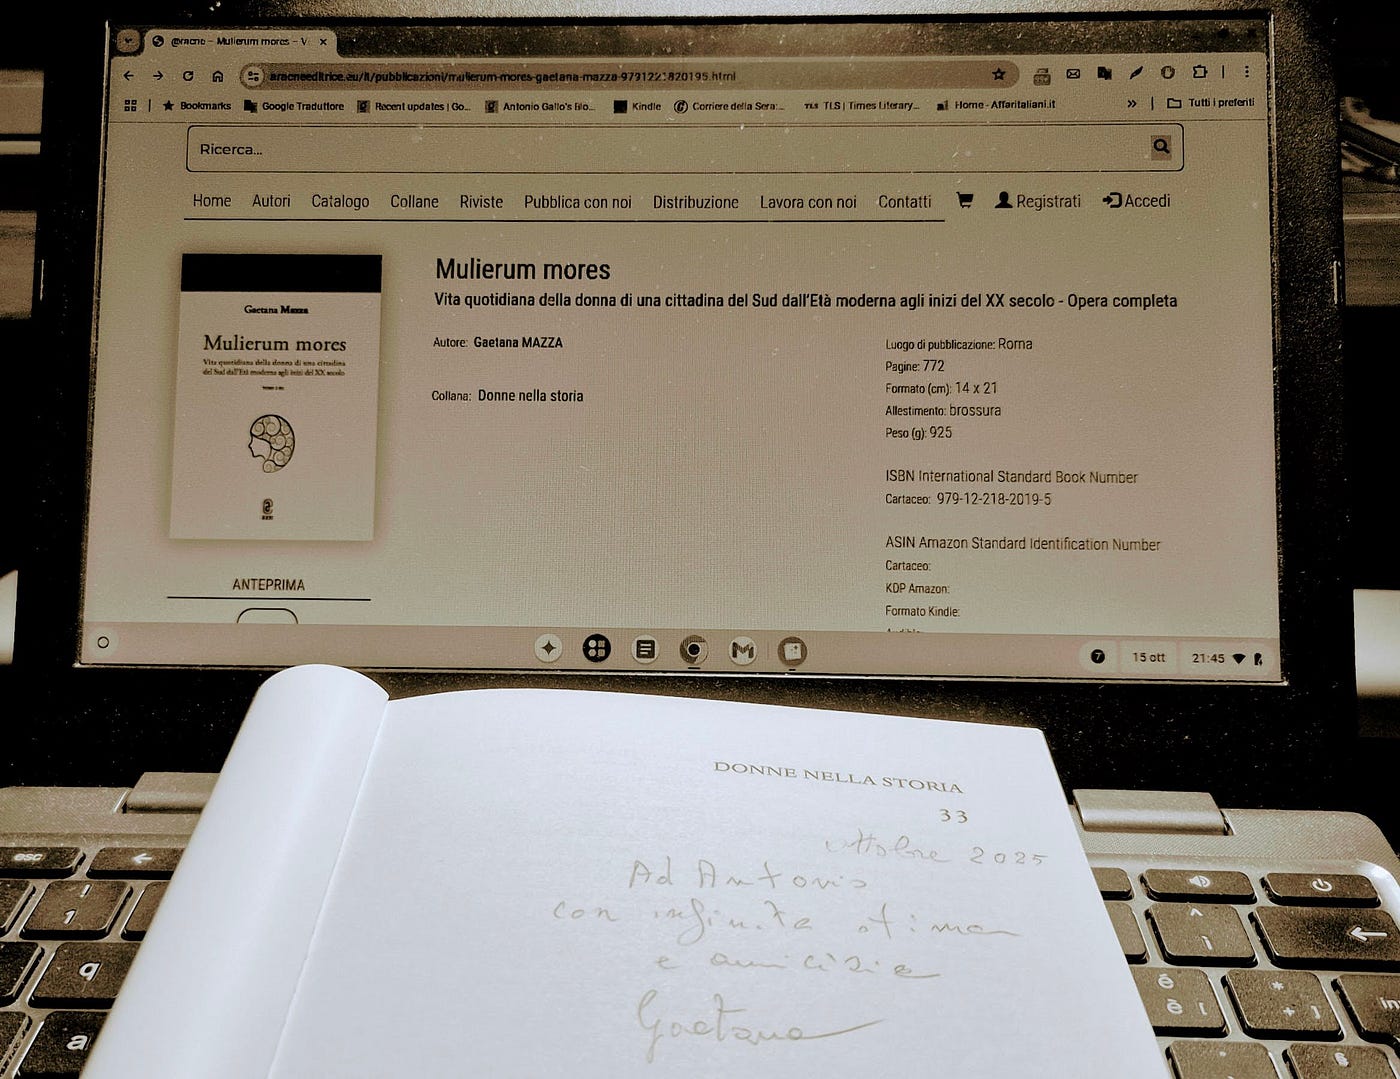 aracne - Mulierum mores - V
aracneeditrice.eu/it/pubblicazioni/mulierum-mores-gaetana-mazza-9791221820195.html
Bookmarks Google Traduttore Recent updates | Go... Antonio Gallo's Blo... Kindle Corriere della Sera:... TLS TLS | Times Literary... Home - Affaritaliani.it » Tutti i preferiti
Ricerca...
Home Autori Catalogo Collane Riviste Pubblica con noi Distribuzione Lavora con noi Contatti Registrati Accedi
Gaetana Mazza
Mulierum mores
Vita quotidiana della donna di una cittadina
del Sud dall'Età moderna agli inizi del XX secolo
ANTEPRIMA
Mulierum mores
Vita quotidiana della donna di una cittadina del Sud dall'Età moderna agli inizi del XX secolo - Opera completa
Autore: Gaetana MAZZA
Collana: Donne nella storia
Luogo di pubblicazione: Roma
Pagine: 772
Formato (cm): 14 x 21
Allestimento: brossura
Peso (g): 925
ISBN International Standard Book Number
Cartaceo: 979-12-218-2019-5
ASIN Amazon Standard Identification Number
Cartaceo:
KDP Amazon:
Formato Kindle:
7 15 ott 21:45
DONNE NELLA STORIA
33
ottobre 2025
Ad Antonio
con infinita stima
e amicizia
Gaetana
esc
!
1
q
a
^
ì
é
è [
*
+ ]
§